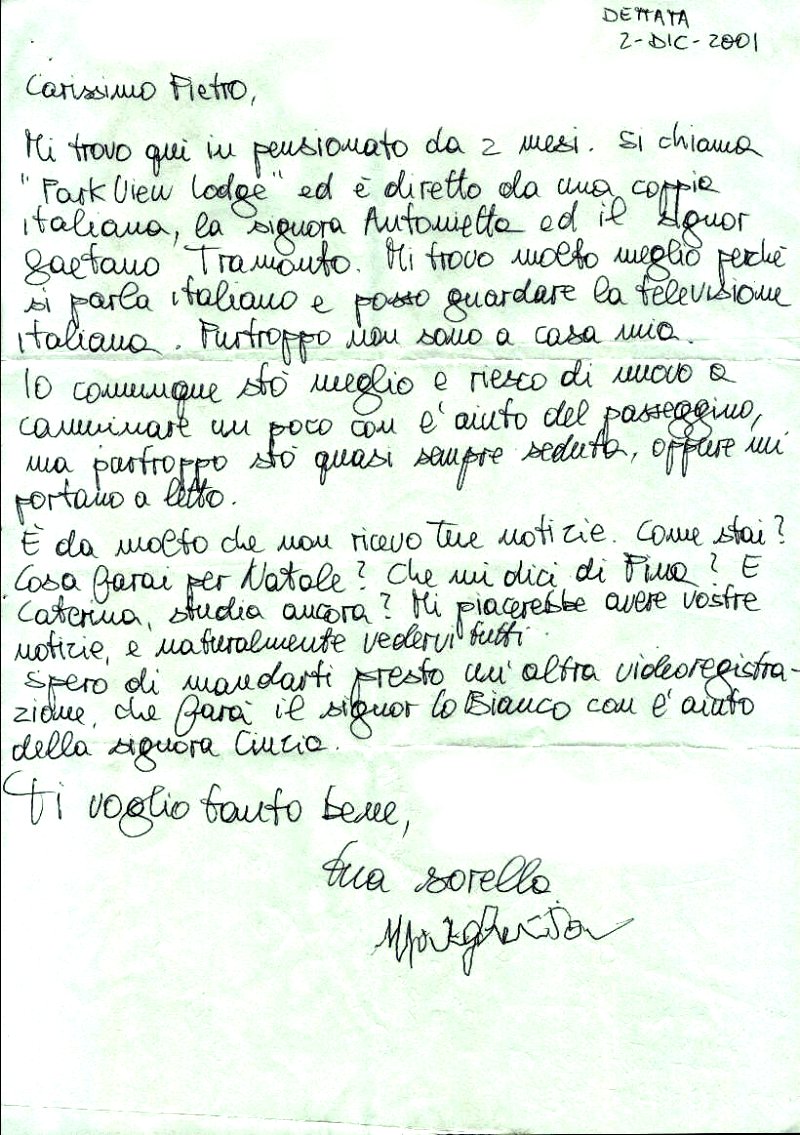 DETTATA
2-DIC-2001
Carissimo Pietro,
Mi trovo qui in pensionato da 2 mesi. Si chiama
"Park View Lodge" ed è diretto da una coppia
italiana, la signora Antonietta ed il signor
Gaetano Tramonto. Mi trovo molto meglio perchè
si parla italiano e posso guardare la televisione
italiana. Purtroppo non sono a casa mia.
Io comunque stò meglio e riesco di nuovo a
camminare un poco con l'aiuto del passeggino,
ma purtroppo stò quasi sempre seduta, oppure mi
portano a letto.
È da molto che non ricevo tue notizie. Come stai?
Cosa farai per Natale? Che mi dici di Pina? E
Caterina, studia ancora? Mi piacerebbe avere vostre
notizie, e naturalmente vedervi tutti.
Spero di mandarti presto un'altra videoregistra-
zione, che farà il signor Lo Bianco con l'aiuto
della signora Cinzia.
Ti voglio tanto bene,
tua sorella
Margherita